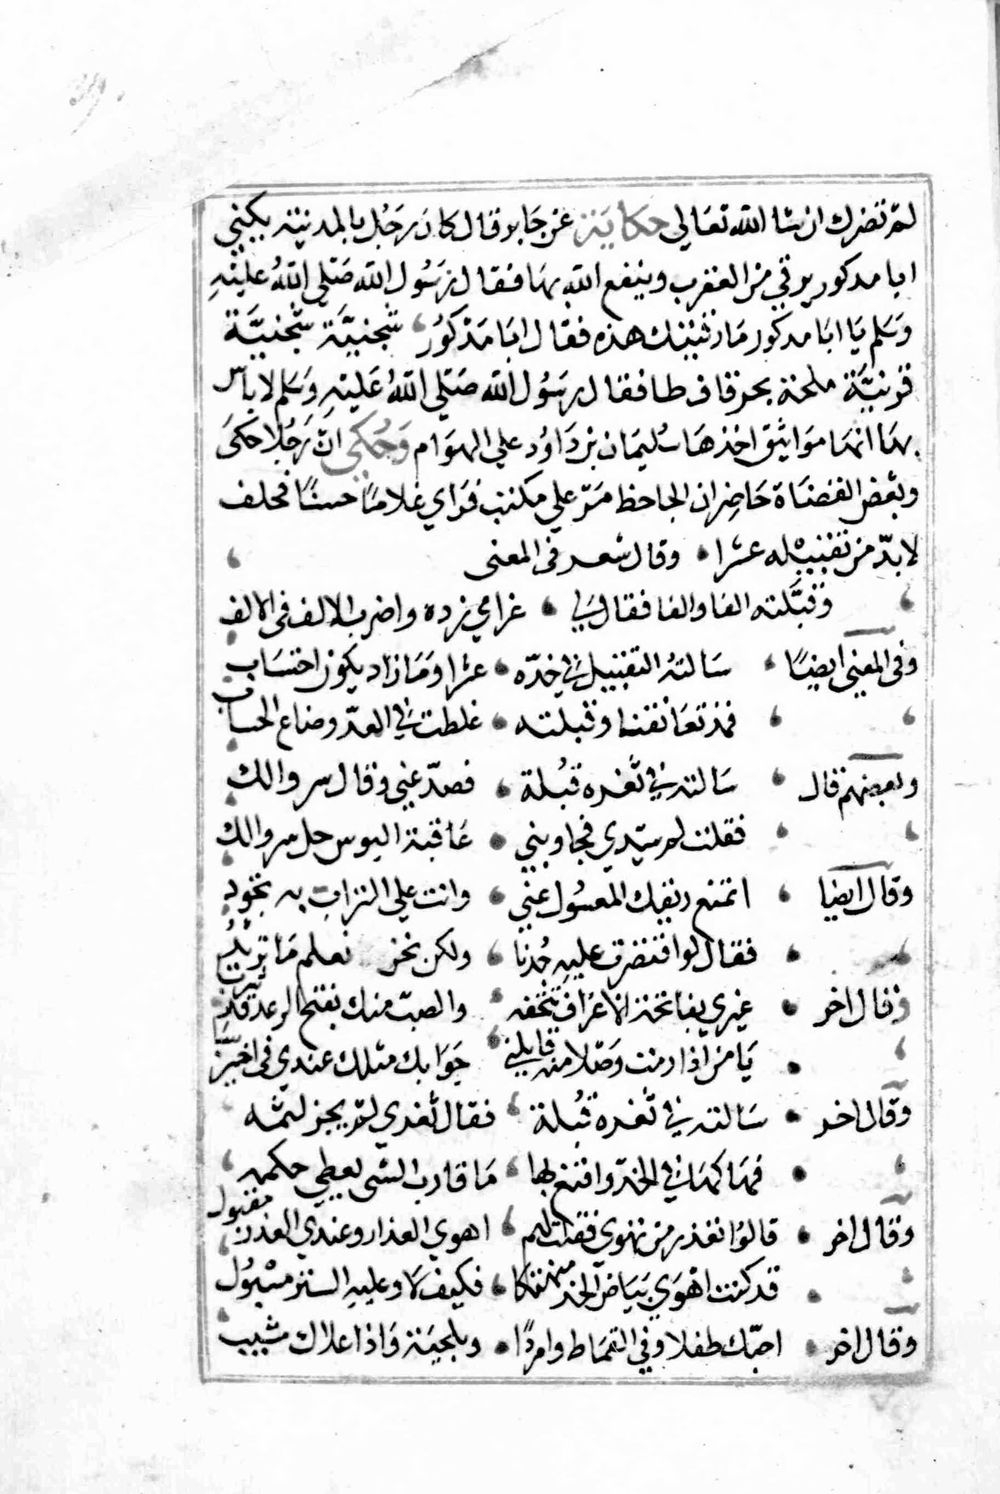 لم تضرك ان شا الله تعالي حكاية عن جابر قال كان رجل بالمدينة يكني
ابا مدكور يرقي من العقرب وينفع الله بها فقال رسول الله صلي الله عليه
وسلم يا ابا مدكور ما رقيتك هذه فقال ابا مذكور شجنيّة شجنيّة
قرنيّة ملحة بحر قاف طا فقال رسول الله صلي الله عليه وسلم لا باس
بها انها مواثيق اخذها سليمان بن داوُد علي الهوام وحُكي انّ رجلا حكى
وبعض القضاة حاضر ان الجاحظ مرّ علي مكتب فراي غلامًا حسنًا فحلف
لا بدّ من تقبيله عشرا وقال شعر في المعنى
وقبّلته الفا والفا فقال لي غرامي زده واضرب الالف في الالف
وفي المعني ايضًا سالته التقبيل في خدّه عشرا وما زاد يكون احتساب
فمذ تعانقنا وقبلته غلطت في العدّ وضاع الحساب
وبعضهم قال سالته في ثغره قُبلة فصدّ عني وقال سروالك
فقلت لم سيّدي فجاوبني عاقبة البوس حل سروالك
وقال ايضا اتمنع ريقك المعسُول عني وانت علي التراب به تجود
فقال لوا قتصرت عليه جُدنا ولكن نحن نعلم ما تريد
وقال اخر غيري بفاتحة الاعراف تتحفه والصبّ منك بفتح الرعد قد
يا من اذا رمت وصلا منه قابلني جوابك مثلك عندي في اخير
وقال اخر سالته في ثغره قُبلة فقال ثغري لم يجز لثمه
فهاكها في الخدّ واقنع بها ما قارب الشي يعطي حكمه
وقال اخر قالوا تعذر من تهوى فقلت لهم اهوي العذار وعندي العذر مقبول
قد كنت اهوي بياض الخد منهتكا فكيف لا وعليه الستر مسبُول
وقال اخر احبّك طفلا وفي القماط وامردًا وبلحية واذا علاك مشيب